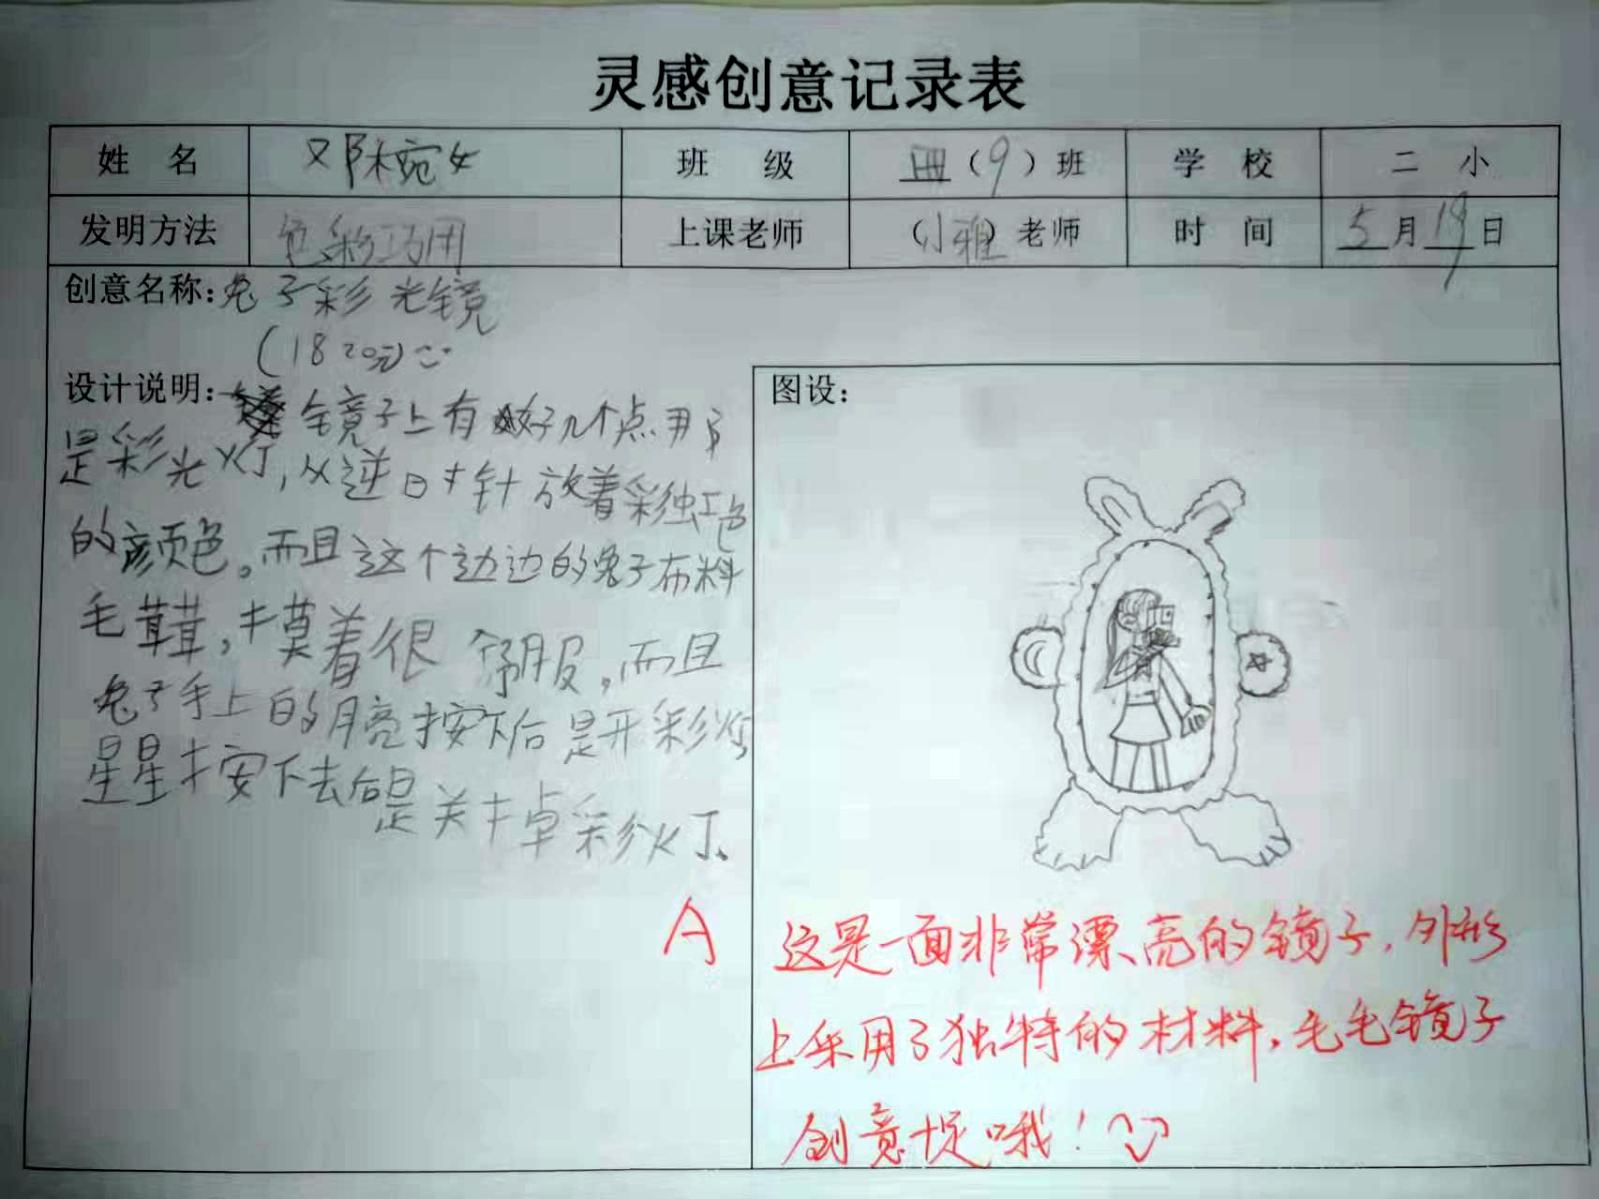 灵感创意记录表
姓 名 邓椀女 班 级 四(9)班 学 校 二 小
发明方法 色彩巧用 上课老师 (小雅)老师 时 间 5月19日
创意名称:兔子彩光镜
(1820元)
设计说明: 镜子上有好几个点用
是彩光灯,从逆时针放着彩虹色
的颜色。而且这个边边的兔子布料
毛茸茸,摸着很舒服,而且
兔子手上的月亮按下后是开彩灯
星星按下去后是关掉彩灯、
A
图设:
这是一面非常漂亮的镜子,外形
上采用了独特的材料,毛毛镜子
创意十足哦!